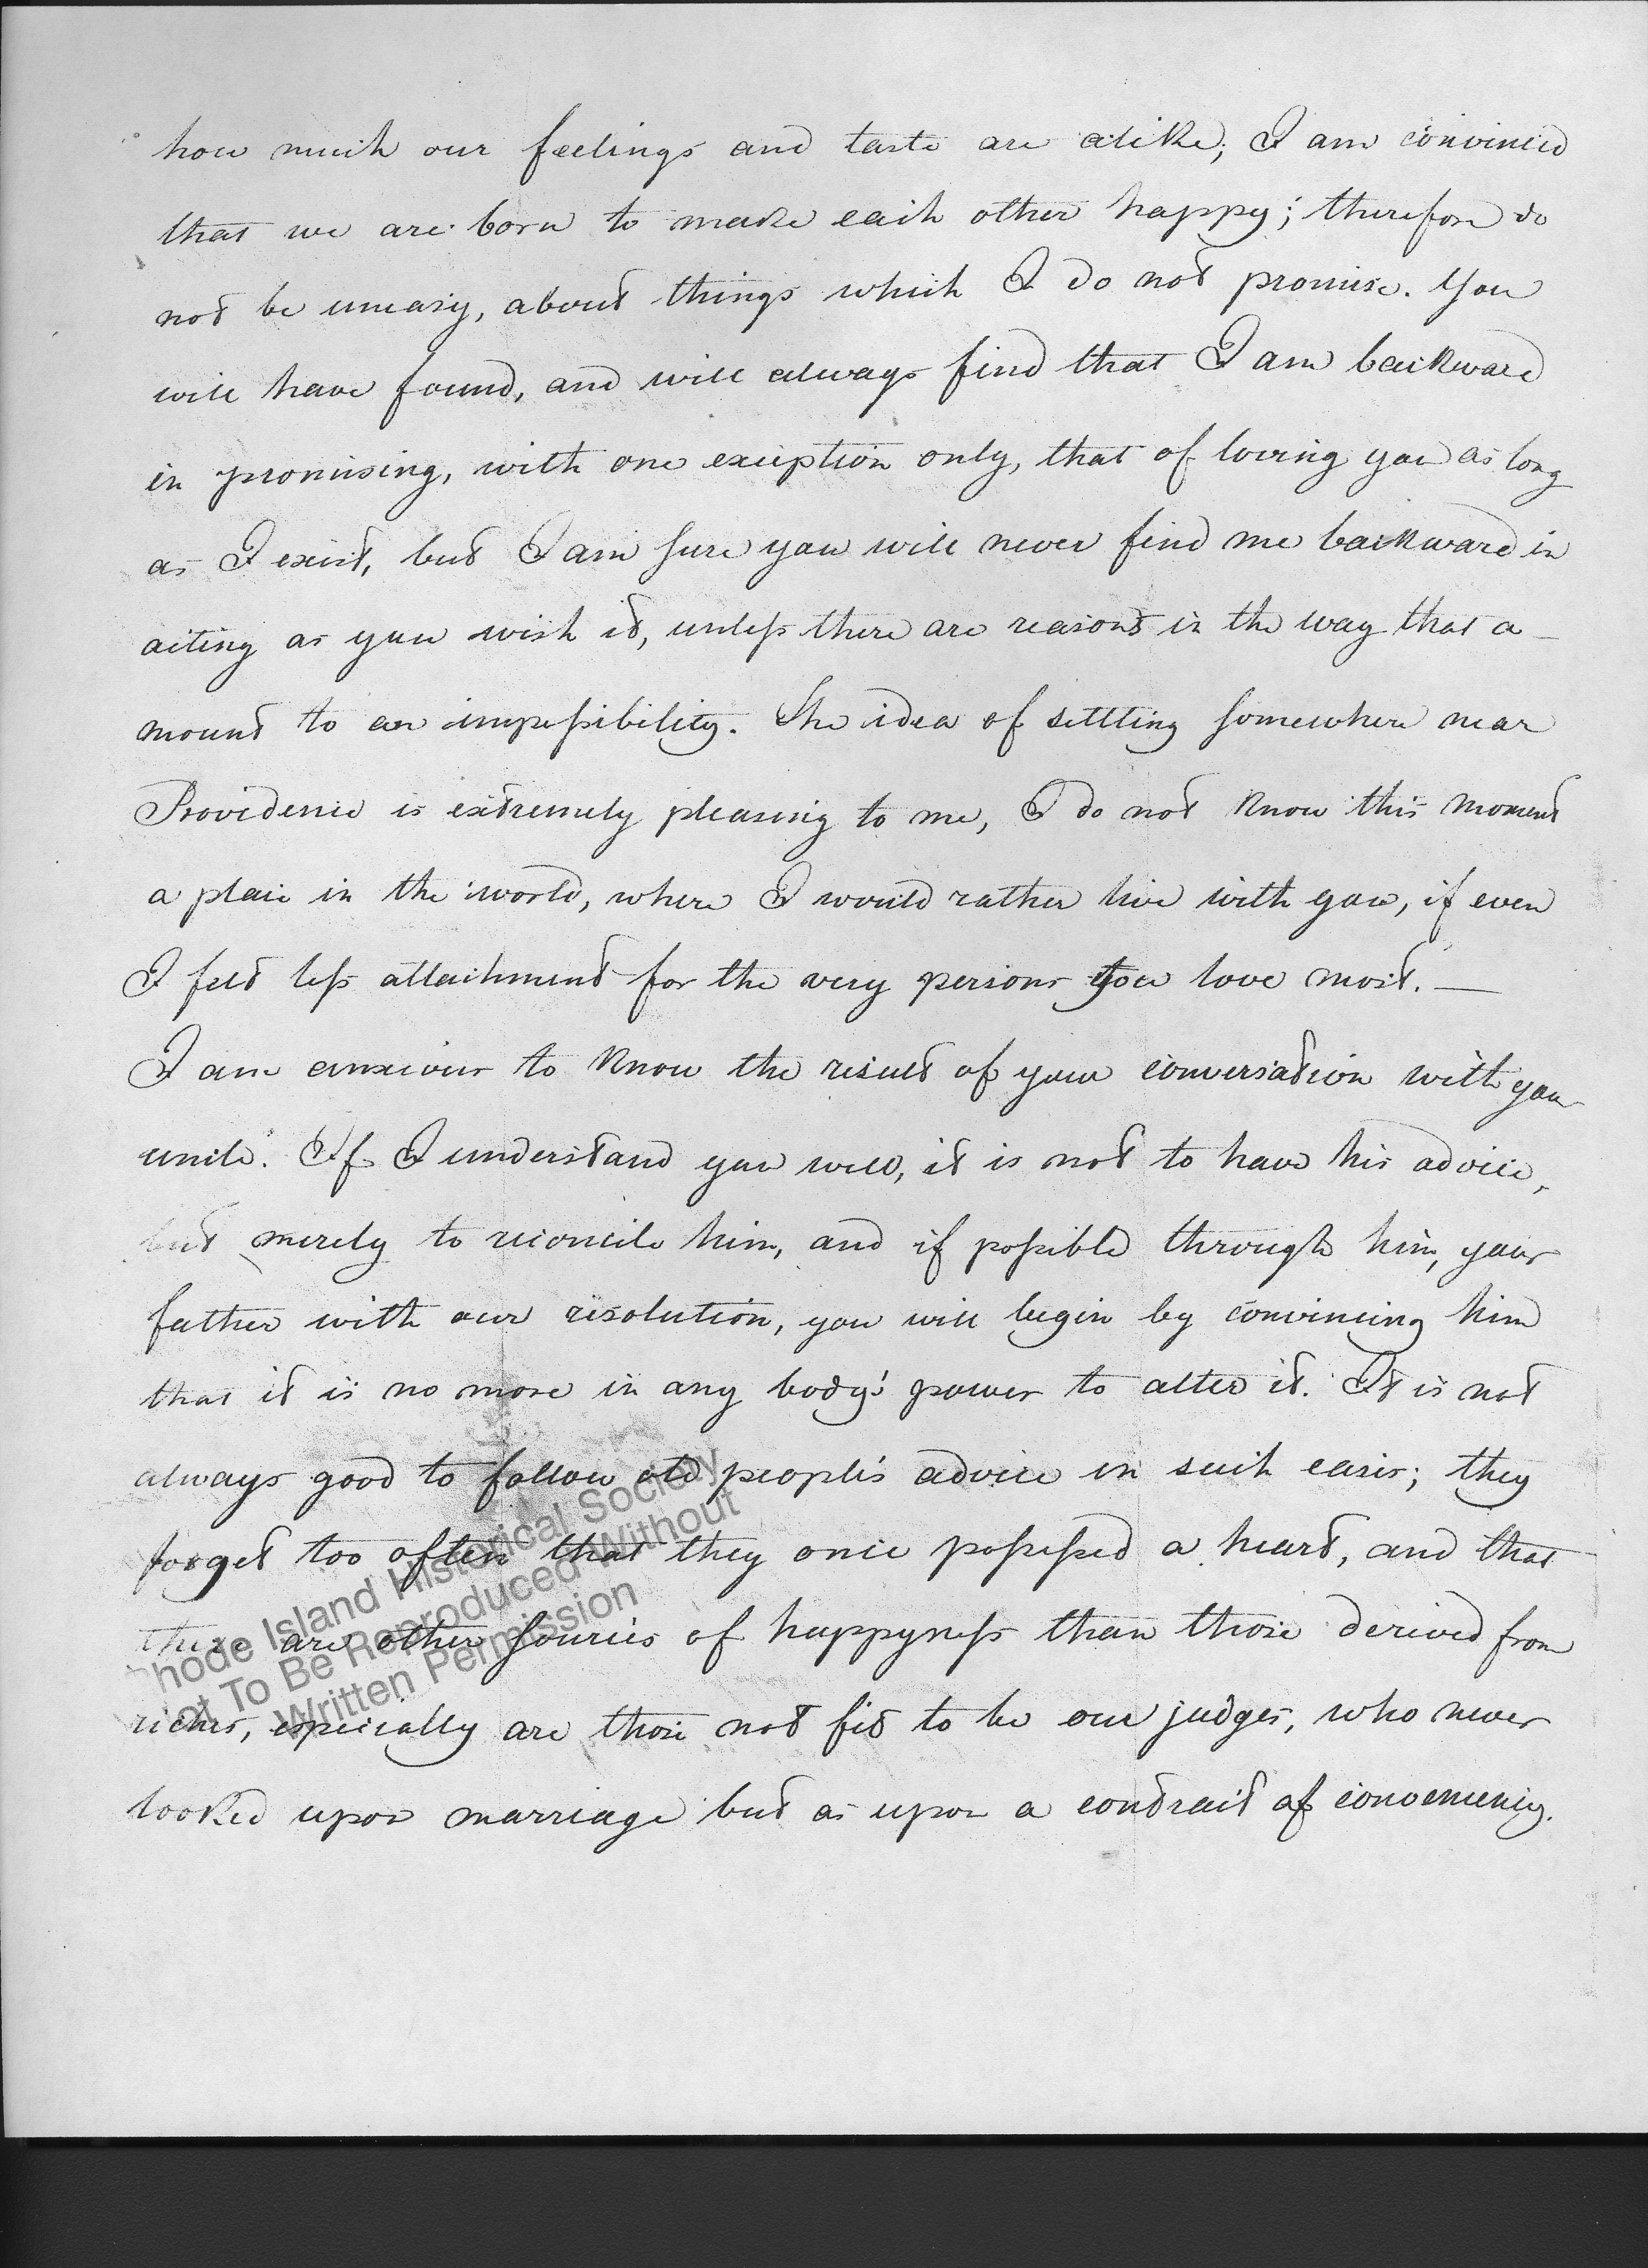 how much our feelings and taste are alike; I am convinced
that we are born to make each other happy; therefore do
not be uneasy, about things which I do not promise. You
will have found, and will always find that I am backward
in promising, with one exception only, that of loving you as long
as I exist, but I am sure you will never find me backward in
acting as you wish it, unless there are reasons in the way that a-
mount to an impossibility. The idea of settling somewhere near
Providence is extremely pleasing to me, I do not know this moment
a place in the world, where I would rather live with you, if even
I felt less attachment for the very persons you love most. —
I am anxious to know the result of your conversation with your
uncle. If I understand you well, it is not to have his advice,
but merely to reconcile him, and if possible through him, your
father with our resolution, you will begin by convincing him
that it is no more in any body's power to alter it. It is not
always good to follow old people's advice in such cases; they
forget too often that they once possessed a heart, and that
there are other sources of happyness than those derived from
riches, especially are those not fit to be our judges, who never
looked upon marriage but as upon a contract of conveniency.
Rhode Island Historical Society
Not To Be Reproduced Without
Written Permission